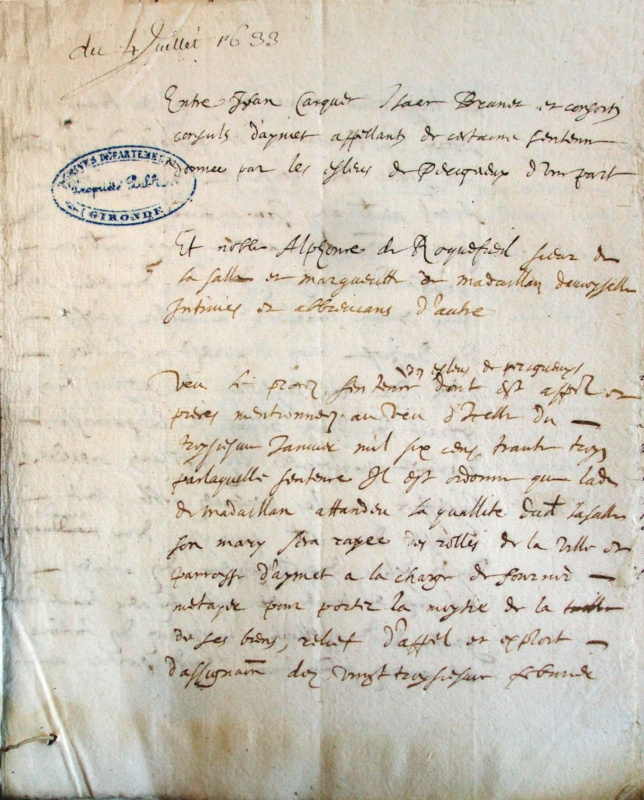 du 4 Juillet 1633
Entre Jean Carquet Isaac Brunet et consorts
consuls d'aymet appellants de certaine sentence
donnee par les esleus de Perigueux d'un part
ARCHIVES DÉPARTEMENTALES
Propriété Publique
GIRONDE
Et noble Alphonse de Roquefieil sieur de
la salle et margueritte de madaillan damoyselle
Intimés et d'autre
des esleus de perigueux
Veu le procez sentence dont est appel et
pieces mentionnez au veu d'Icelle du
troysiesme Janvier mil six cens trante troys
par laquelle sentence Il est ordonne que lade
de madaillan attandeu la quallité dudt Lasalle
son mary sera rayee des rolles de la ville et
parroisse d'aymet a la charge de fournir
metayer pour porter la moytie de la taille
de ses biens, relief d'appel et exploit
d'assignaon dez vingt troysiesme febvrier